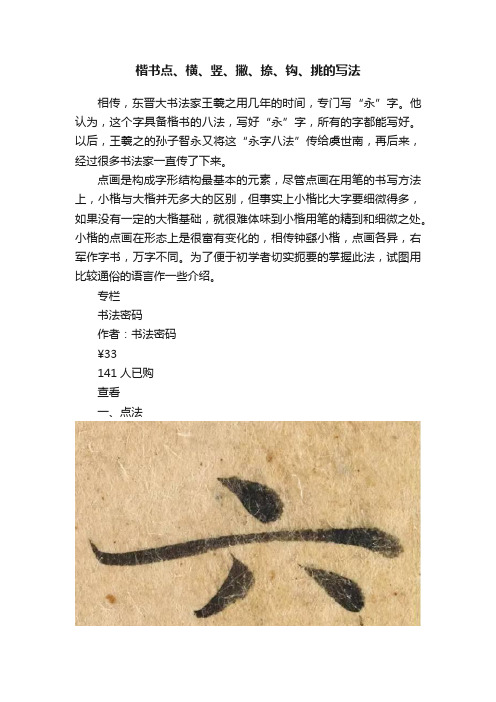 楷书点、横、竖、撇、捺、钩、挑的写法
相传，东晋大书法家王羲之用几年的时间，专门写“永”字。他
认为，这个字具备楷书的八法，写好“永”字，所有的字都能写好。
以后，王羲之的孙子智永又将这“永字八法”传给虞世南，再后来，
经过很多书法家一直传了下来。
点画是构成字形结构最基本的元素，尽管点画在用笔的书写方法
上，小楷与大楷并无多大的区别，但事实上小楷比大字要细微得多，
如果没有一定的大楷基础，就很难体味到小楷用笔的精到和细微之处。
小楷的点画在形态上是很富有变化的，相传钟繇小楷，点画各异，右
军作字书，万字不同。为了便于初学者切实扼要的掌握此法，试图用
比较通俗的语言作一些介绍。
专栏
书法密码
作者：书法密码
¥33
141人已购
查看
一、点法
六